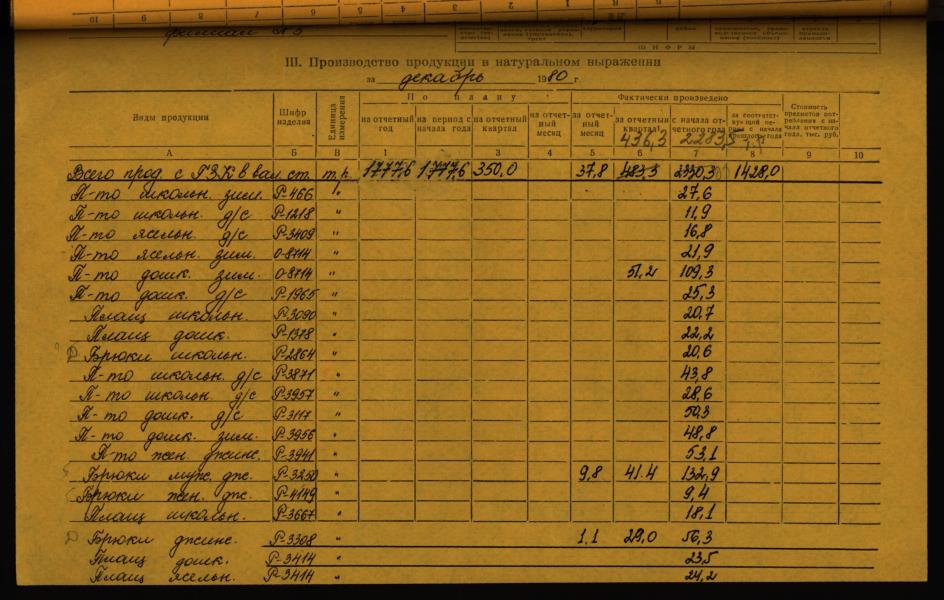 филиал № 5
ШИФРЫ
III. Производство продукции в натуральном выражении
за декабрь 1980 г.
Виды продукции Шифр изделия Единица измерения По плану Фактически произведено
на отчетный год на период с начала года на отчетный квартал на отчетный месяц за отчетный месяц за отчетный квартал с начала отчетного года
436,3
А Б В 1 2 3 4 5 6 7 8 9 10
Всего прод. с ГЗК в вал. ст. т.р. 1777,6 1777,6 350,0 37,8 483,5 2330,3 1428,0
П-то школьн. зим. Р-466 " 27,6
П-то школьн. д/с Р-1218 " 11,9
П-то ясельн. д/с Р-3409 " 16,8
П-то ясельн. зим. 0-8714 " 21,9
П-то дошк. зим. 0-8714 " 51,2 109,3
П-то дошк. д/с Р-1965 " 25,3
Плащ школьн. Р-3090 " 20,7
Плащ дошк. Р-1378 " 22,2
Брюки школьн. Р-2864 " 20,6
П-то школьн. д/с Р-3871 " 43,8
П-то школьн. д/с Р-3957 " 28,6
П-то дошк. д/с Р-3117 " 50,3
П-то дошк. зим. Р-3956 " 48,8
П-то жен. джинс. Р-3941 " 53,1
Брюки муж. дж. Р-3250 " 9,8 41.4 132,9
Брюки жен. дж. Р-4149 " 9,4
Плащ школьн. Р-3667 " 18,1
Брюки джинс. Р-3308 " 1.1 29,0 56,3
Плащ дошк. Р-3414 " 23,5
Плащ ясельн. Р-3414 " 24,2